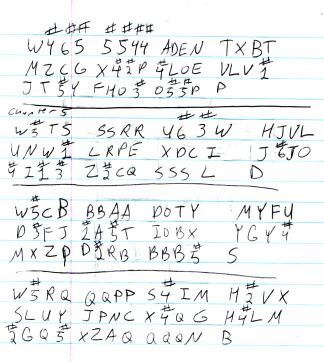 # ## # ###
W465 5544 ADEN TXBT
MZCG X42P 4LOE VLV1
JT5Y FH03 055P P
Counter 5
W5T5 SSRR 463W HJVL
UNW1 LRPE XDCI J6JO
4I13 Z2CQ SSSL D
W5CB BBAA DOTY MYFU
D5FJ 2A5T IOBX YGY4
MXZP D2RB BBB5 S
W5RQ QQPP S4IM H2VX
SLUY JPNC X4QG H4LM
2GQ5 XZAQ QQQN B